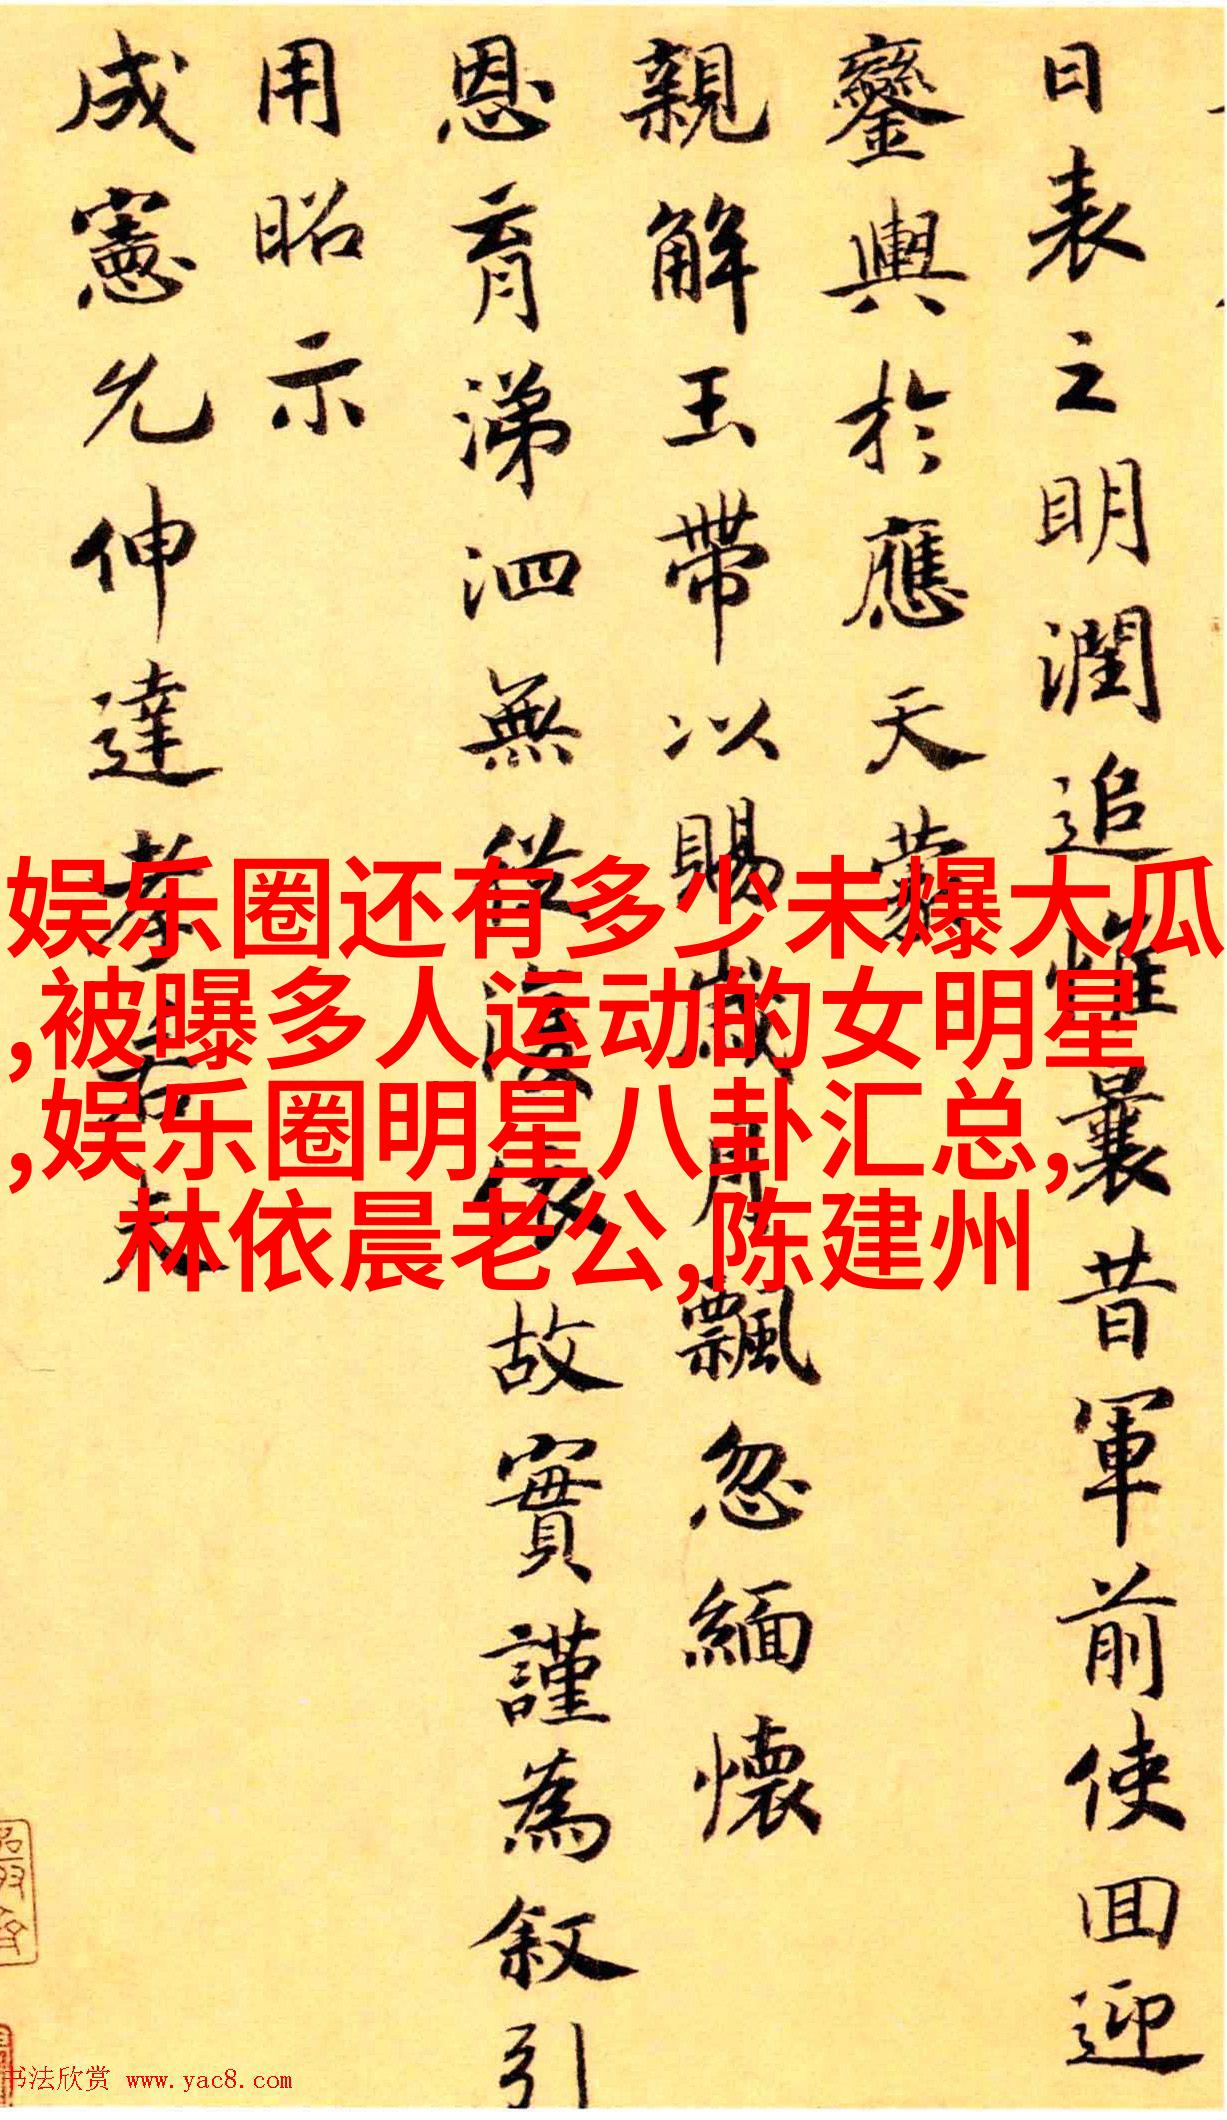 日表之明潤追惟曩昔軍前使回迎
鑾輿於應天蒙
親解玉帶以賜歲月飄忽緬懷
恩育涕泗無從復依故實謹為叙引
用昭示
成憲允伸達孝若夫
娱乐圈还有多少未爆大瓜
,被曝多人运动的女明星
,娱乐圈明星八卦汇总,
林依晨老公,陈建州
书法欣赏 www.yac8.com